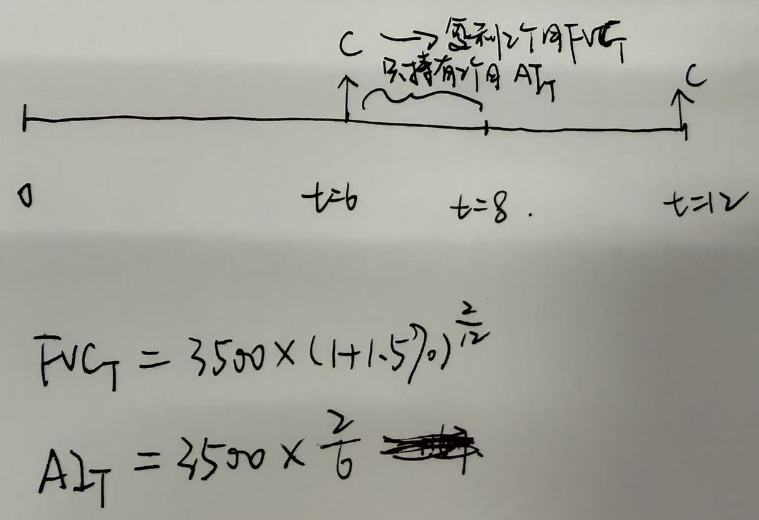 C → 复利2个月FVC_T
只持有2个月 AI_T
C
0 t=6 t=8. t=12
FVC_T = 3500×(1+1.5%)^{2/12}
AI_T = 3500 × 2/6